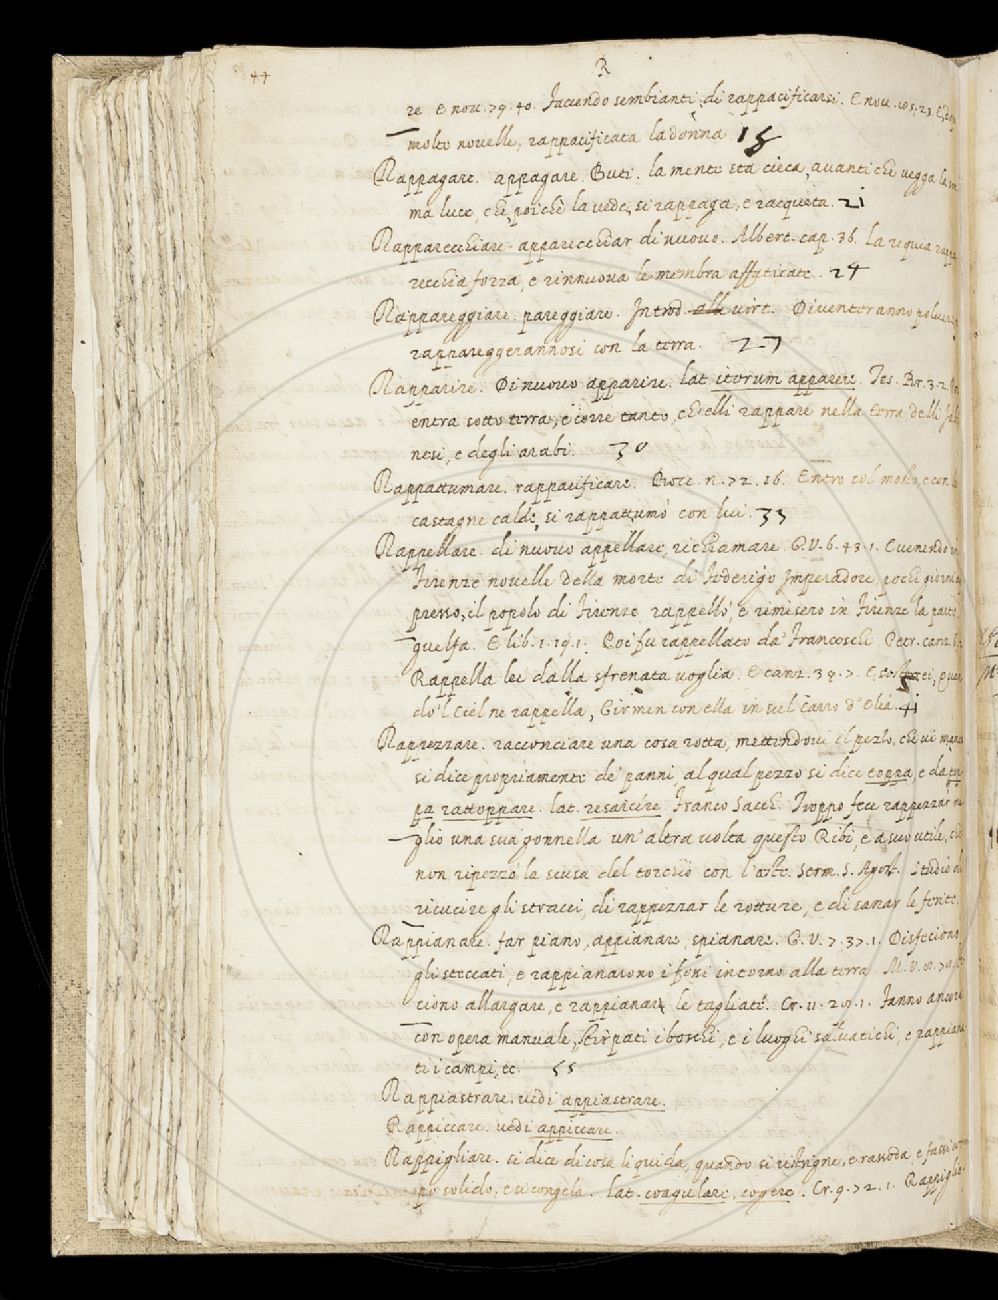 44
R
re. E nov. 79. 40. Facendo sembianti di rappacificarsi. E nov. 105. 23. E, dop
molte novelle, rappacificata la donna 15
Rappagare. appagare. Buti. la mente sta cieca, avanti che vegga la
ma luce, che, poichè la vede, si rappaga, e racqueta. 21
Rapparecchiare. apparecchiar di nuovo. Albert. cap. 36. La requia rappa
recchia forza, e rinnuova le membra affaticate. 24
Rappareggiare. pareggiare. Introd. alle virt. Diventeranno polvere,
rappareggerannosi con la terra. 27
Rapparire. Di nuovo apparire. lat. iterum apparere. Tes. Br. 3. 2.
entra sotto terra, e corre tanto, ch'elli rappare nella terra delli
nesi, e degli arabi. 30
Rappattumare. rappacificare. Bocc. n. 72. 16. Entro col mosto, e con le
castagne calde, si rappattumò con lui. 33
Rappellare. di nuovo appellare, richiamare. G. V. 6. 43. 1. E venendo in
Firenze novelle della morte di Federigo Imperadore, pochi giorni
presso, il popolo di Firenze rappellò, e rimisero in Firenze la parte
guelfa. E lib. 1. 19. 1. Poi fu rappellato da' Franceschi. Petr. canz.
Rappella lei dalla sfrenata voglia. E canz. 39. 7. E
do 'l Ciel ne rappella, Girmen con ella in sul Carro d'Elia. 41
Rappezzare. racconciare una cosa rotta, mettendovi il pezzo, che vi manca
si dice propriamente de' panni al qual pezzo si dice toppa, e da top
pa rattoppare. lat. resarcire. Franco Sacch. Troppo fece rappezzar me
glio una sua gonnella un'altra volta questo Ribi, e a suo utile, che
non ripezzò la scusa del torchio con l'oste. Serm. S. Agost. Studio di
ricucire gli stracci, di rappezzar le rotture, e di sanar le ferite.
Rappianare. far piano, appianare, spianare. G. V. 7. 37. 1. Disfeciono
gli steccati, e rappianarono i fossi intorno alla terra. M. V.
ciono allargare, e rappianare le tagliate. Cr. 11. 20. 1. Fanno ancora
con opera manuale, stirpati i boschi, e i luoghi salvatichi, e rappiana
ti i campi, ec. 55
Rappiastrare. vedi appiastrare.
Rappiccare. vedi appiccare.
Rappigliare. si dice di cosa liquida, quando si ristrigne, e rassoda, e fassi
po solido, e si congela. lat. coagulare, cogere. Cr. 9. 72. 1. Rappiglia